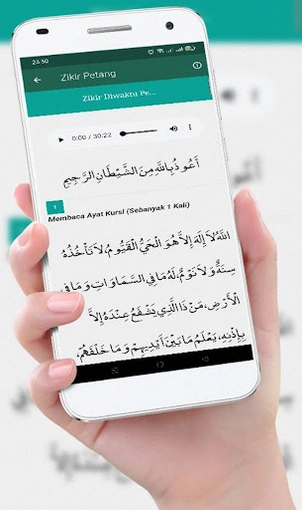 23:50
Zikir Petang
Zikir Diwaktu Pe...
0:00 / 30:22
أَعُوذُ بِاللَّهِ مِنَ الشَّيْطَانِ الرَّجِيمِ
1
Membaca Ayat Kursi (Sebanyak 1 Kali)
اللَّهُ لَا إِلَهَ إِلَّا هُوَ الْحَيُّ الْقَيُّومُ، لَا تَأْخُذُهُ
سِنَةٌ وَلَا نَوْمٌ، لَهُ مَا فِي السَّمَاوَاتِ وَمَا فِي
الْأَرْضِ، مَنْ ذَا الَّذِي يَشْفَعُ عِنْدَهُ إِلَّا
بِإِذْنِهِ، يَعْلَمُ مَا بَيْنَ أَيْدِيهِمْ وَمَا خَلْفَهُمْ